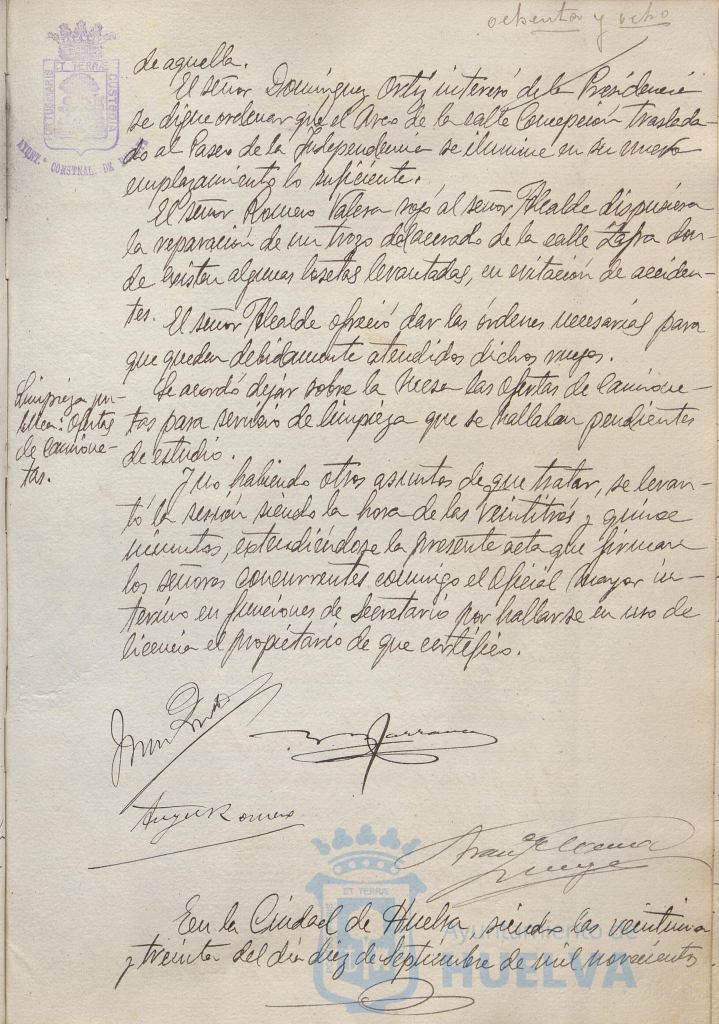 ochenta y ocho
PORTUS MARIS ET TERRÆ CUSTODIA
AYUNT. CONSTNAL. DE
de aquella.
El señor Domínguez Ortiz interesó de la Presidencia
se digne ordenar que el Arco de la calle Concepción traslada-
do al Paseo de la Independencia se ilumine en su nuevo
emplazamiento lo suficiente.
El señor Romero Valera rogó al señor Alcalde dispusiera
la reparación de un trozo del acerado de la calle Zafra don-
de existen algunas losetas levantadas, en evitación de acciden-
tes.
El señor Alcalde ofreció dar las órdenes necesarias para
que queden debidamente atendidos dichos ruegos.
Limpieza pú-
blica: Ofertas
de camione-
tas.
Se acordó dejar sobre la Mesa las ofertas de camione-
tas para servicio de limpieza que se hallaban pendientes
de estudio.
Y no habiendo otros asuntos de que tratar, se levan-
tó la sesión siendo la hora de las veintitrés y quince
minutos, extendiéndose la presente acta que firman
los señores concurrentes conmigo el Oficial Mayor in-
terino en funciones de Secretario por hallarse en uso de
licencia el propietario de que certifico.
Barranco
Romero
ET TERRÆ
Ayuntamiento de
HUELVA
En la Ciudad de Huelva, siendo las veintiuna
y treinta del día diez de Septiembre de mil novecientos